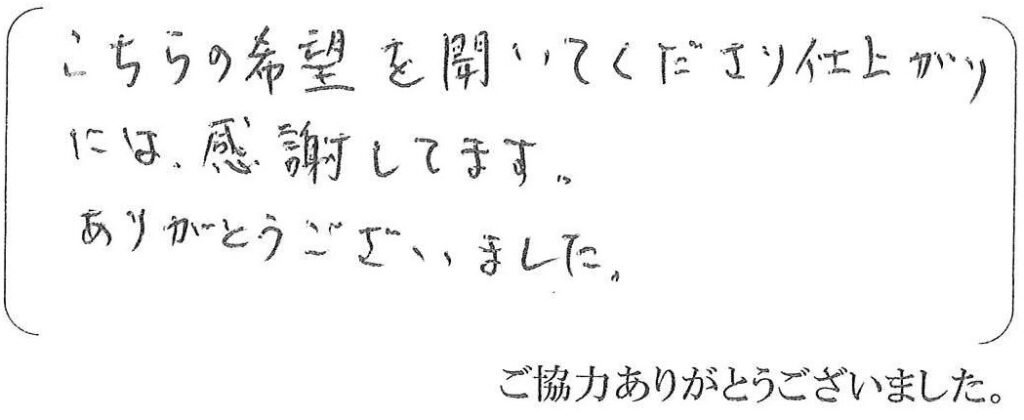 こちらの希望を聞いてくださり仕上がり
には、感謝してます。
ありがとうございました。
ご協力ありがとうございました。